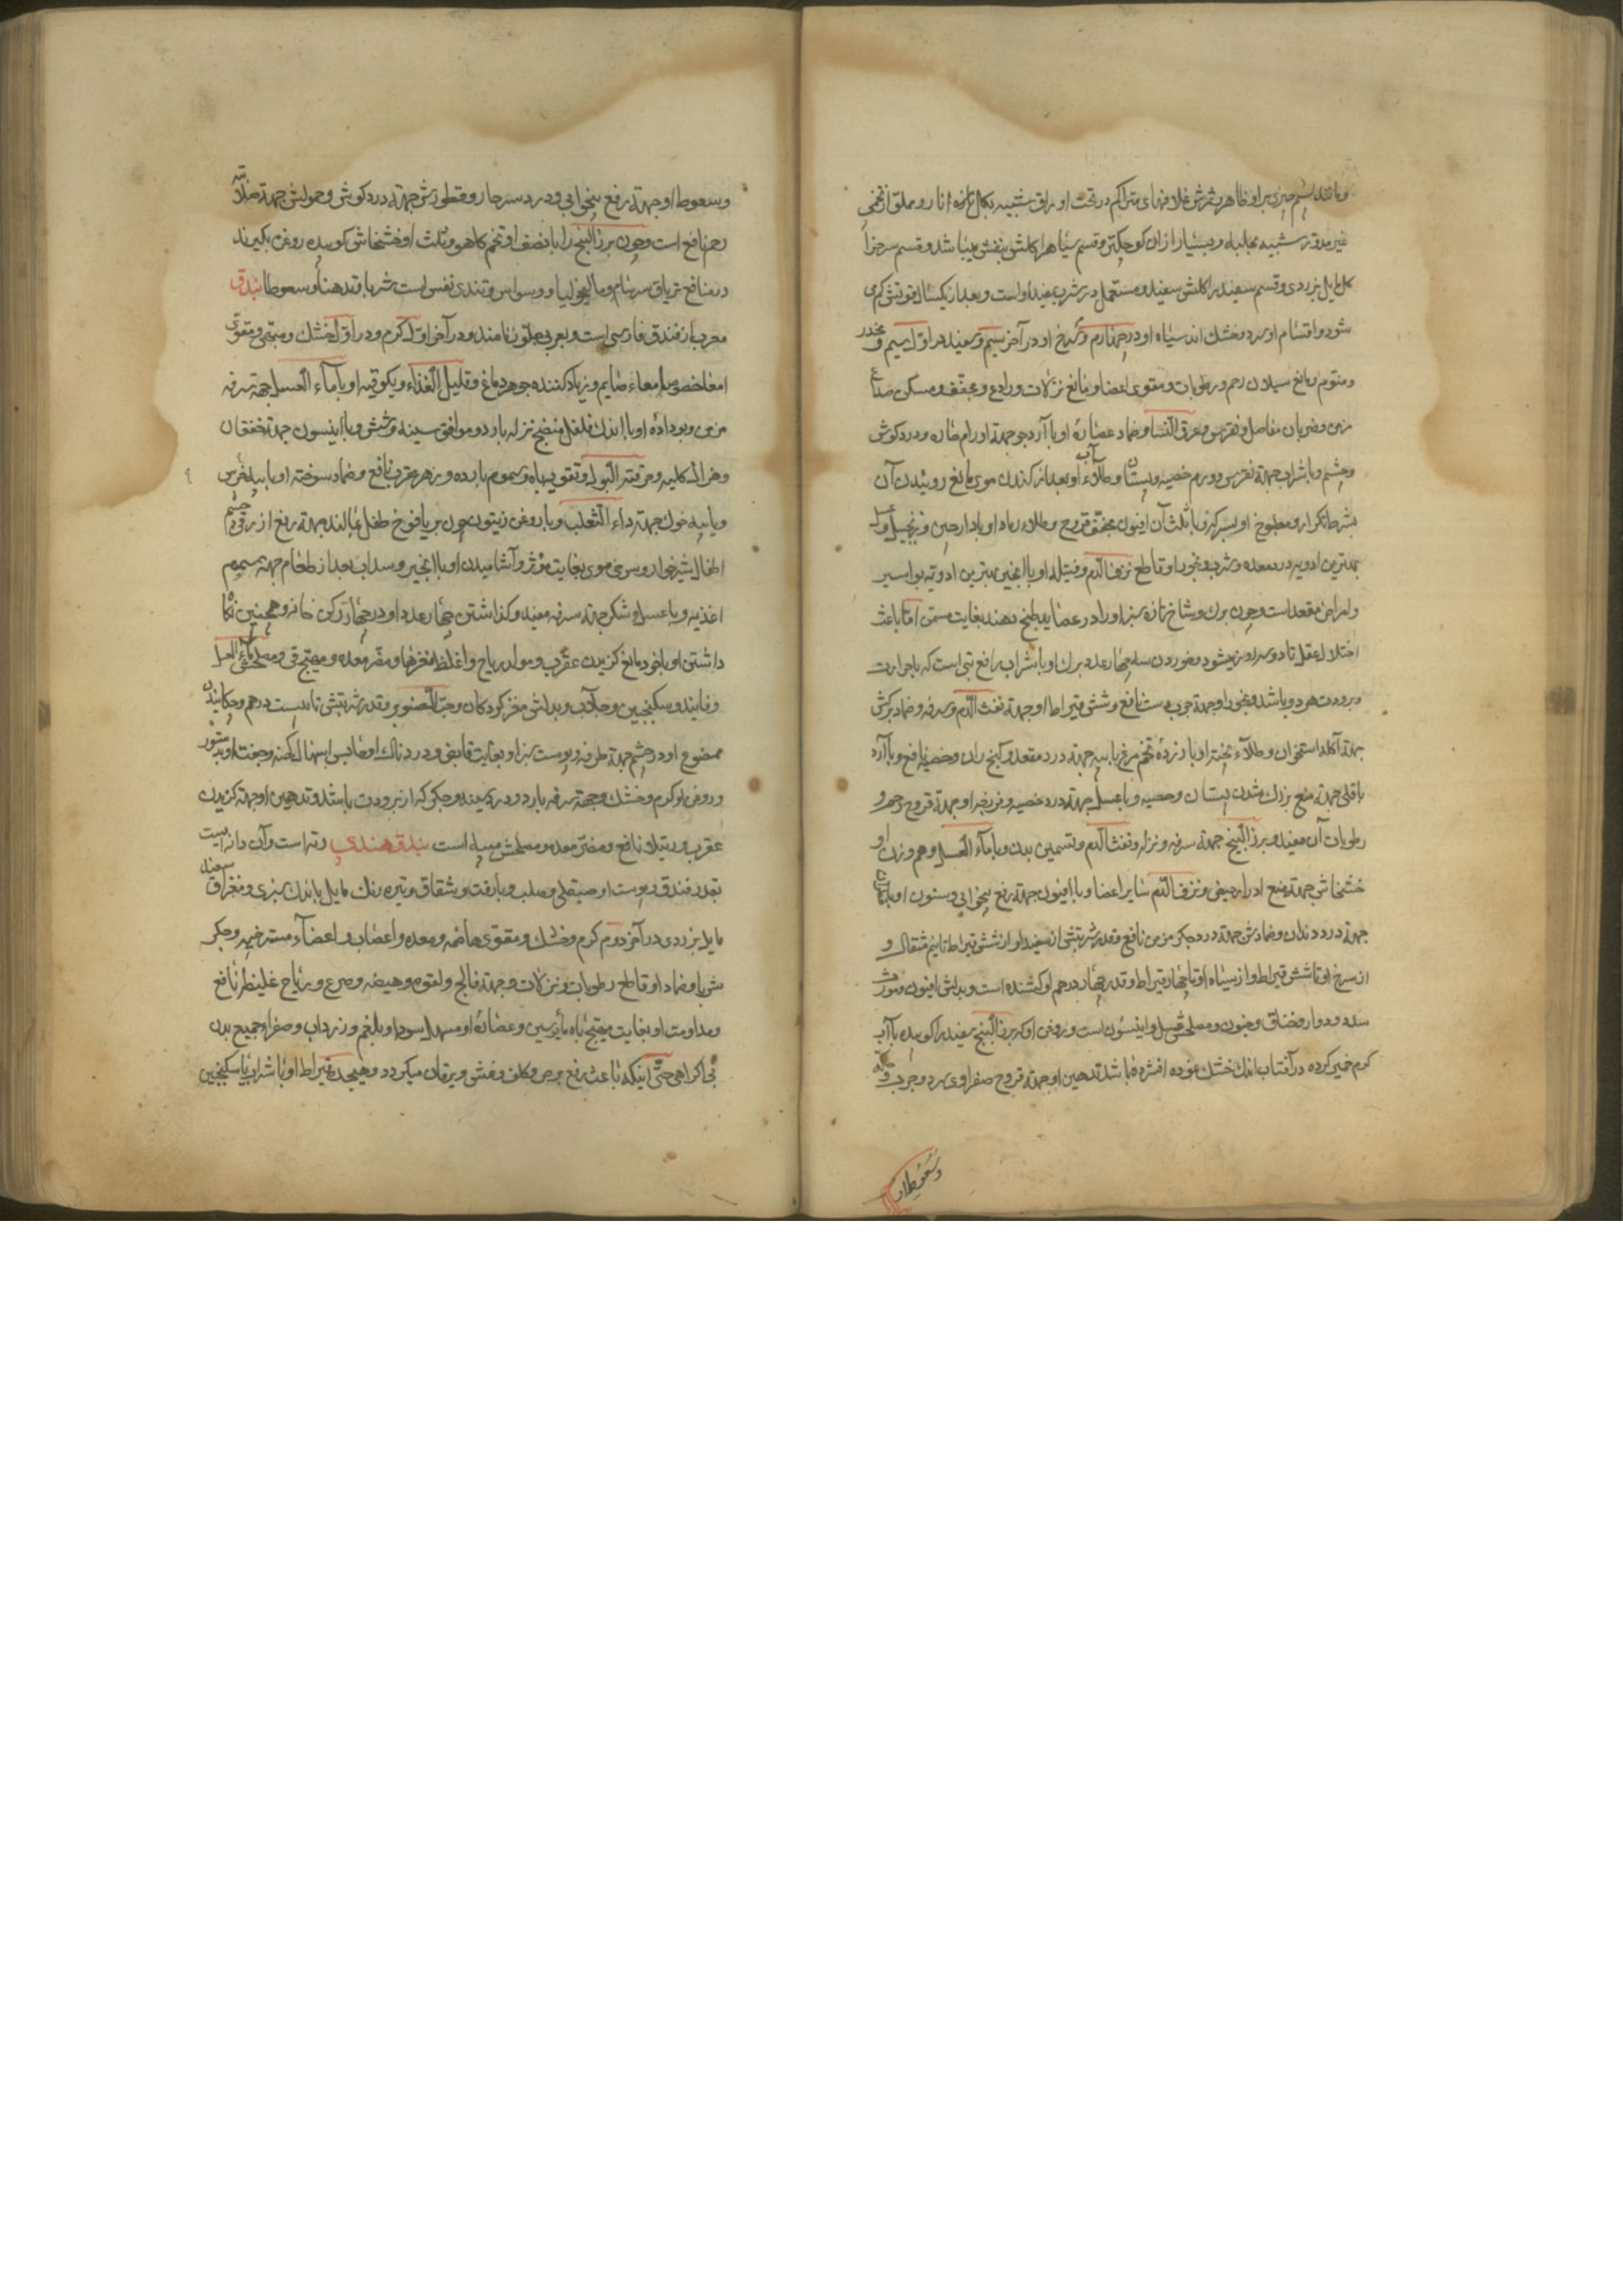 و مانند پشم چیزی بر او ظاهر و ثمرش غلافهای متراکم در تحت اوراق شبیه بکل تازه انار و مملو از تخمی
غیر مدور شبیه بحلبه و بسیار از ان کوچکتر و قسم سیاه را کلش بنفش میباشد و قسم سرخ را
کل مایل بزردی و قسم سفید را کلش سفید و مستعمل در شرب سفید اوست و بعد از یکسال قوتش کم
شود و اقسام او سرد و خشک اند سیاه او در چهارم و سرخ او در آخر سیم و سفید در اول سیم و مخدر
و منوم و مانع سیلان رحم و رطوبات و مقوی اعضا و مانع نزلات و رادع و مجفف و مسکن صداع
مزمن و ضربان مفاصل و نقرس و عرق النسا و ضماد عصاره او با آرد جو جهة اورام حاره و درد کوش
و چشم و با شراب جهة نقرس و ورم خصیه و پستان و طلاء آب او بعد از کندن موی مانع روییدن آن
بشرط تکرار و مطبوخ او بسرکه و با ثلث آن افیون مجفف قروح و طلاء رماد او با دارچین و زنجبیل و عسل
بهترین ادویه درد معده و شرب و بخور او قاطع نزف الدم و فتیله او با انجیر بهترین ادویه بواسیر
و امراض مقعد است و چون برک و شاخ تازه سبز او را در عصاید طبخ دهند بغایت مسمن اما باعث
اختلال عقل تا دو سه روز میشود و خوردن سه چهار عدد برک او با شراب رافع تبی است که با حرارت
و برودت هر دو باشد و بخور او جهة جرب دست نافع و شش قیراط او جهة نفث الدم و سرفه و ضماد برکش
جهة آکله استخوان و طلاء پخته او با زرده تخم مرغ با پیه جهة درد مقعد و کنج ران و خصیه نافع و با آرد
باقلی جهة منع بزرك شدن پستان و خصیه و با عسل جهة درد خصیه و فرزجه او جهة قروح رحم و
رطوبات آن مفید و بزر البنج جهة سرفه و نزله و نفث الدم و تسمین بدن و با ماء العسل و هم وزن او
خشخاش جهة منع ادرار حیض و نزف الدم سایر اعضا و با افیون جهة رفع بیخوابی و سنون او با
جهة درد دندان و ضمادش جهة درد جکر مزمن نافع و قدر شربتش از سفید او از شش قیراط تا نیم مثقال و
از سرخ او تا شش قیراط و از سیاه او تا چهار قیراط و قدر چهار درهم او کشنده است و بدلش افیون و مورث
سدد و دوار و خناق و جنون و مصلحش عسل و انیسون است و روغن او که بزر البنج سفید را کوبیده با آب
کرم خمیر کرده در آفتاب اندک خشک نموده افشرده باشد تدهین او جهة قروح صفراوی سر و جرب و حکه
و سعوط او
و سعوط او جهة رفع بیخوابی و درد سر حار و قطورش جهة درد کوش و حمولش جهة صلابة
رحم نافع است و چون بزر البنج را با نصف او تخم کاهو و ثلث او خشخاش کوبیده روغن بکیرند
در منافع تریاق سرسام و مالیخولیا و وسواس و تندی نفس است شربا و تدهینا و سعوطا بندق
معرب از فندق فارسی است و بعربی جلوز نامند و در آخر اول کرم و در اول خشک و مبهی و مقوی
امعا خصوصا معاء صایم و زیاد کننده جوهر دماغ و قلیل الغذاء و یکوقیه او با ماء العسل جهة سرفه
مزمن و بو داده او با اندک فلفل منضج نزله بارد و موافق سینه و شش و با انیسون جهة خفقان
و هزال کلیه و حرقة البول و تقویت باه و سموم بارده و زهر عقرب نافع و ضماد سوخته او با پیه خرس
و یا پیه خوك جهة داء الثعلب و با روغن زیتون چون بر یافوخ طفل بمالند جهة رفع ازرقی چشم
اطفال شیرخوار و سرخی موی بغایت مؤثر و آشامیدن او با انجیر و سداب بعد از طعام جهة سموم
اغذیه و با عسل و شکر جهة سرفه مفید و کذاشتن چهار عدد او در چهار رکن خانه و همچنین نکا
داشتن او با خود مانع کزیدن عقرب و مولد ریاح و اغلظ مغزها و مضر معده و مهیج قی و مصلحش ماء العسل
و فانید و سکنجبین و جلاب و بدلش مغز کردکان و حب الصنوبر و قدر شربتش تا بیست درهم و چکانیدن
ممضوغ او در چشم جهة طرفه و پوست سبز او بغایت قابض و درد ناک او حابس اسهال کهنه و جفت او بدستور
و روغن او کرم و خشک و جهة سرفه بارد و درد سینه و جکر که از برودت باشد و تدهین او جهة کزیدن
عقرب و رتیلا نافع و مضر معده و مصلحش مصطکی است بندق هندی رته است و آن دانه ایست
بقدر فندق و پوست او صیقلی و صلب و با رفت و شقاق و تیره رنک مایل باندک سبزی و مغز او سفید
مایل بزردی در آخر دوم کرم و خشک و مقوی هاضمه و معده و اعصاب و اعضاء مسترخیه و جکر
شربا و ضمادا و قاطع رطوبات و نزلات و جهة فالج و لقوه و هیضه و صرع و ریاح غلیظه نافع
و مداومت او بغایت مهیج باه مأیوسین و عصاره او مسهل سودا و بلغم و زرداب و صفراء جمیع بدن
بی اکراهی حتی اینکه باعث رفع برص و کلف و نمش و یرقان میکردد و هیجده قیراط او با شراب یا سکنجبین